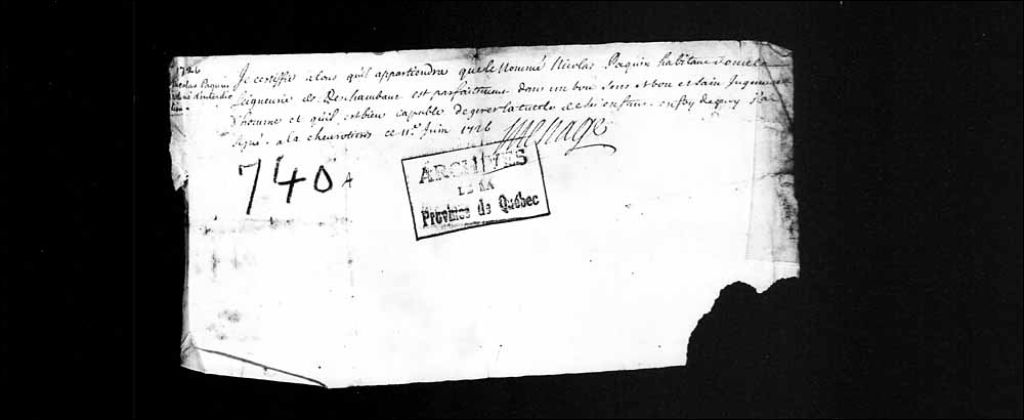 1726
Nicolas Paquin
Je certiffie a tous qu'il appartiendra que le Nommé Nicolas Paquin habitant
Seigneurie de Deschambaut est parfaitement dans un bon sens et bon et sain Jugement
d'homme et qu'il est bien capable de gerer la tutele de en foy de quoy j'ai
signé a la chevrotiere ce 11e Juin 1726 Menage
740 A
ARCHIVES
DE LA
Province de Québec